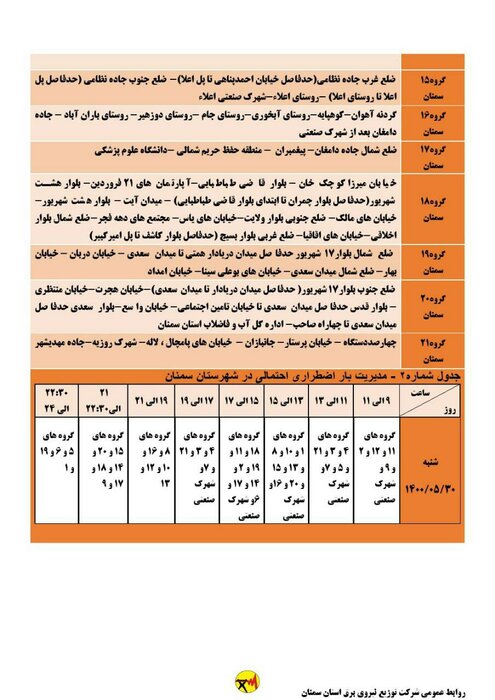 گروه۱۵
سمنان
ضلع غرب جاده نظامی(حدفاصل خیابان احمدپناهی تا پل اعلا)– ضلع جنوب جاده نظامی (حدفاصل پل
اعلا تا روستای اعلا) –روستای اعلاء–شهرک صنعتی اعلاء
گروه۱۶
سمنان
گردنه آهوان–کوهپایه–روستای آبخوری–روستای جام –روستای دوزهیر– روستای باران آباد – جاده
دامغان بعد از شهرک صنعتی
گروه۱۷
سمنان
ضلع شمال جاده دامغان– پیغمبران – منطقه حفظ حریم شمالی –دانشگاه علوم پزشکی
گروه۱۸
سمنان
خیابان میرزا کوچک خان – بلوار قاضی طباطبایی–آپارتمان های ۲۱ فروردین– بلوار هشت
شهریور(حدفاصل بلوار چمران تا ابتدای بلوار قاضی طباطبایی) – میدان آیت – بلوار هشت شهریور–
خیابان های مالک– ضلع جنوبی بلوار ولایت–خیابان های یاس– مجتمع های دهه فجر– ضلع شمال بلوار
اخلاقی–خیابان های اقاقیا– ضلع غربی بلوار بسیج (حدفاصل بلوار کاشف تا پل امیرکبیر)
گروه۱۹
سمنان
ضلع شمال بلوار۱۷ شهریور حدفاصل میدان دریادار همتی تا میدان سعدی –خیابان دربان – خیابان
بهار– ضلع شمال میدان سعدی– خیابان های بوعلی سینا– خیابان امداد
گروه۲۰
سمنان
ضلع جنوب بلوار۱۷ شهریور( حدفاصل میدان دریادار تا میدان سعدی)–خیابان هجرت–خیابان منتظری
– بلوار قدس حدفاصل میدان سعدی تا خیابان تامین اجتماعی– خیابان واسع– بلوار سعدی حدفاصل
میدان سعدی تا چهاراه صاحب– اداره کل آب و فاضلاب استان سمنان
گروه۲۱
سمنان
چهارصددستگاه – خیابان پرستار– جانبازان – خیابان های پامچال ، لاله– شهرک روزیه–جاده مهدیشهر
جدول شماره۲ – مدیریت بار اضطراری احتمالی در شهرستان سمنان
ساعت
روز
۹ الی ۱۱
۱۱ الی ۱۳
۱۳ الی ۱۵
۱۵ الی ۱۷
۱۷ الی ۱۹
۱۹ الی ۲۱
۲۱
الی۲۲:۳۰
۲۲:۳۰
الی ۲۴
شنبه
۱۴۰۰/۰۵/۳۰
گروه های
۱۱ و ۱۲ و ۲
و ۹ و
شهرک
صنعتی
گروه های
۴ و ۳ و ۲۱
و ۵ و ۷و
شهرک
صنعتی
گروه های
۱ و ۱۰ و ۸
و ۱۳ و ۱۵
و ۲۰ و ۱۶و
شهرک
صنعتی
گروه های
۱۸ و ۱۱ و
۱۹ و ۲ و
۱۴ و ۱۷ و
۶و شهرک
صنعتی
گروه های
۴ و ۳ و ۲۱
و ۷و
شهرک
صنعتی
گروه های
۸ و ۱۶ و
۱۰ و ۱۲ و
۱۳
گروه های
۱۵ و ۲۰ و
۱۴ و ۱۸ و
۱۷ و ۹
گروه های
۵ و ۶ و ۱۹
و ۱
روابط عمومی شرکت توزیع نیروی برق استان سمنان